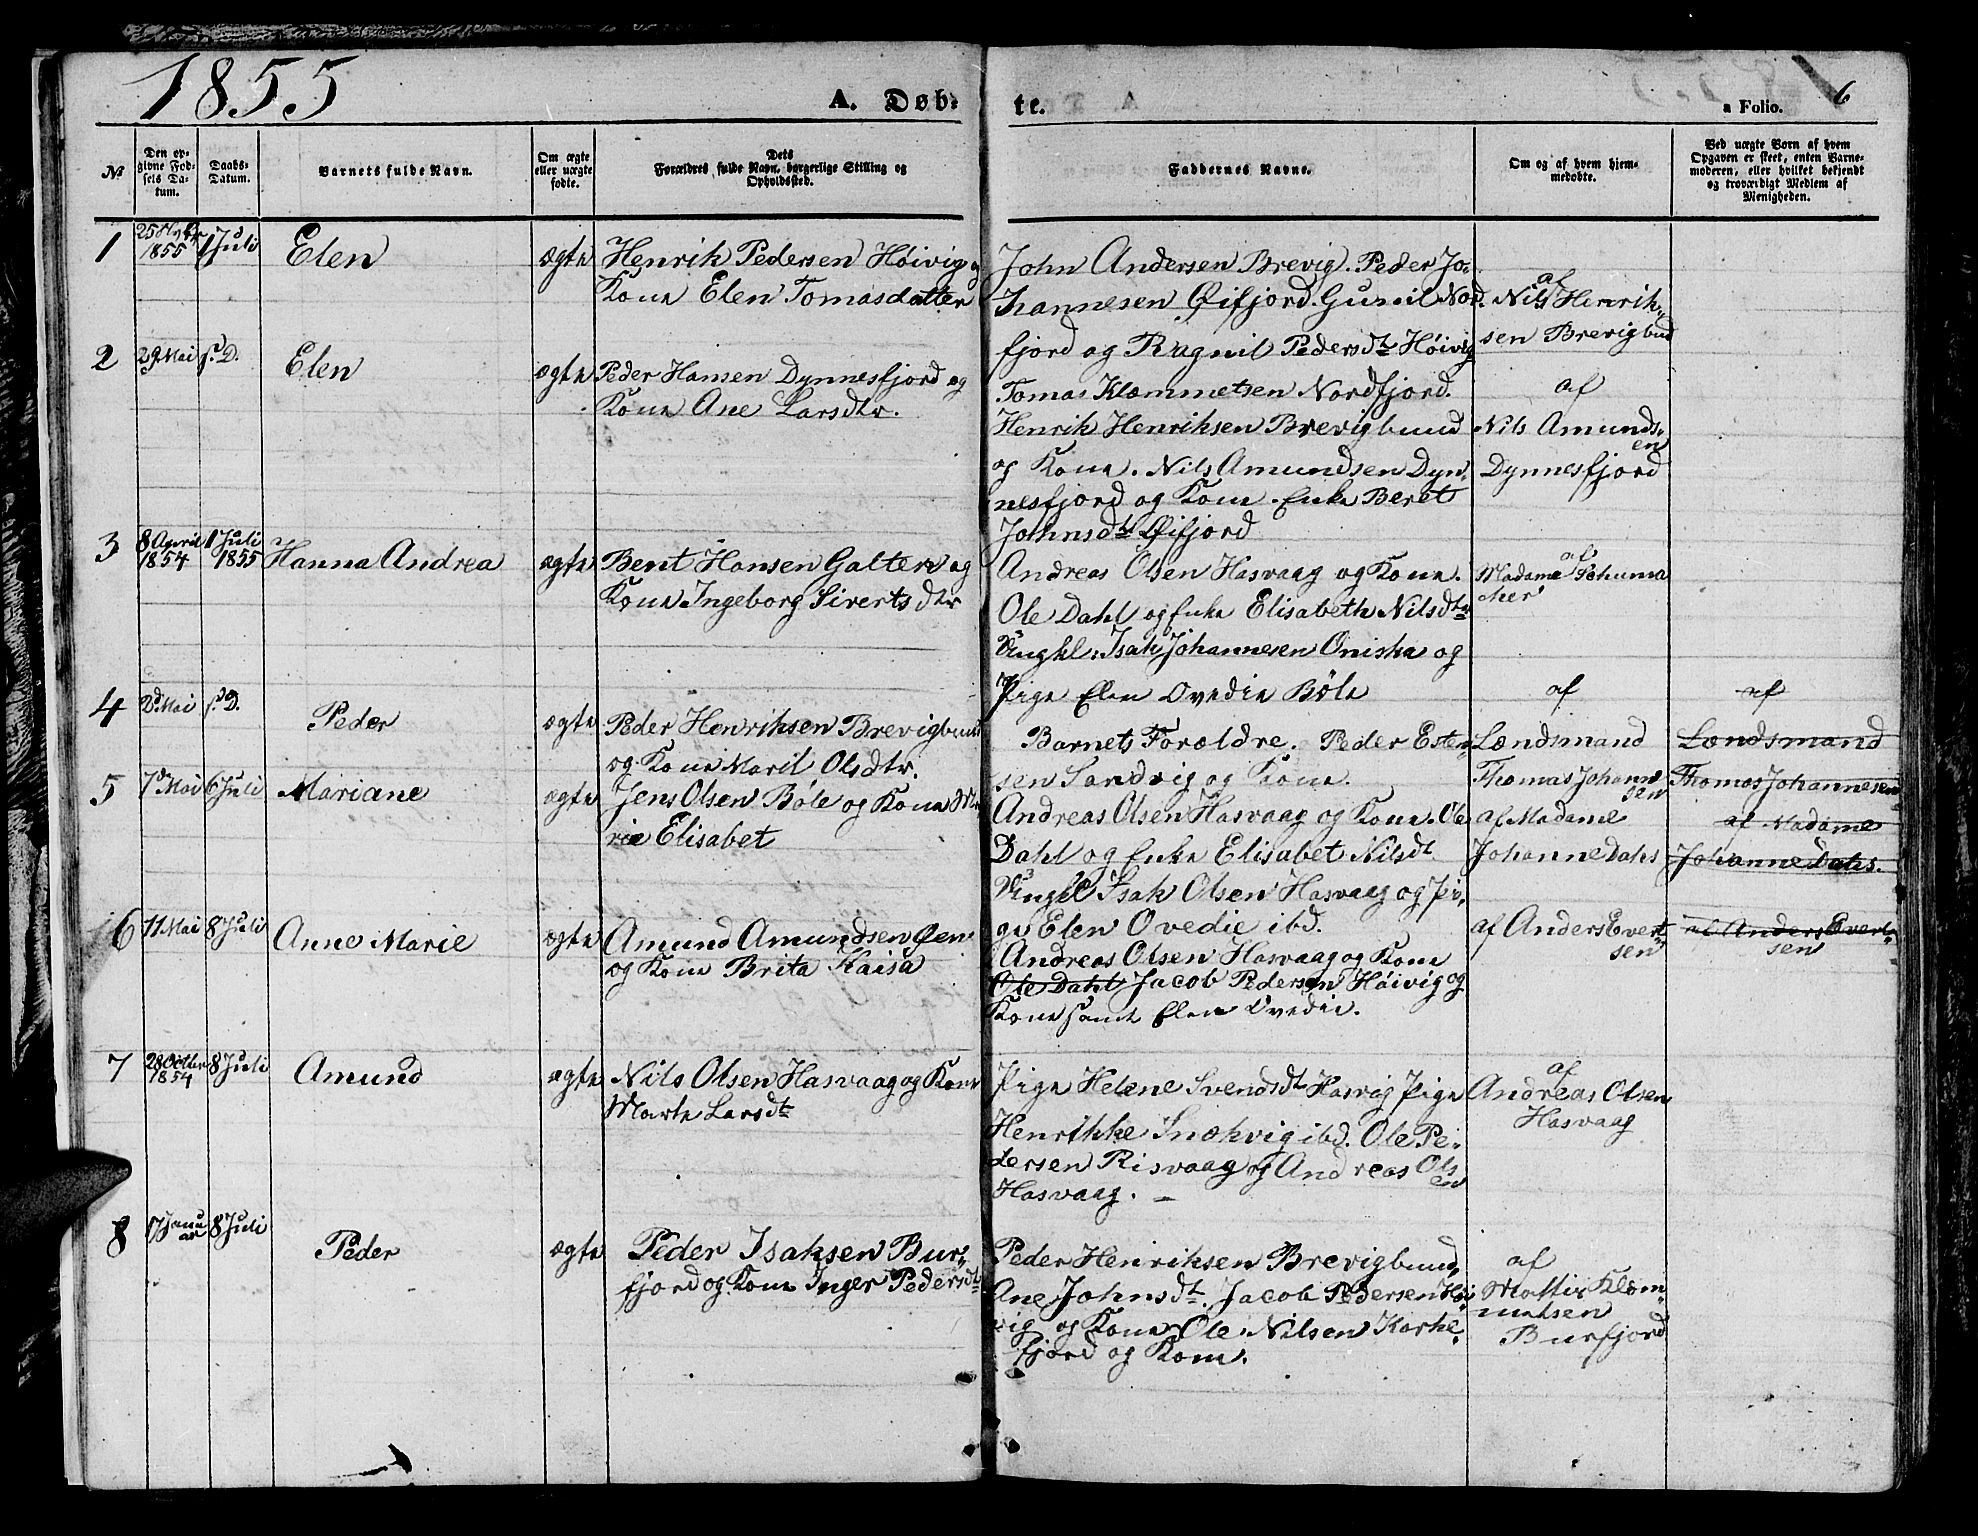 1855
A. Døb-
te.
a Folio.
6
№
Den op-
givne Fød-
sels Da-
tum.
Daabs-
Datum.
Barnets fulde Navn.
Om ægte
eller uægte
fødte.
Dets
Forældres fulde Navn, borgerlige Stilling og
Opholdssted.
Faddernes Navne.
Om og af hvem hjem-
medøbte.
Ved uægte Børn af hvem
Opgaven er skeet, enten Barne-
moderen, eller hvilket bekjendt
og troværdigt Medlem af
Menigheden.
1
1855
1 Juli
Elen
ægte
Henrik Pedersen Høivig og
Kone Elen Tomasdatter
John Andersen Brevig. Peder Jo-
hannesen Øifjord. Gunil Nord-
fjord og Ragnil Pedersdt Høivig
af
Nils Henrik-
sen Brevigbud
2
29 Mai
s. D.
Elen
ægte
Peder Hansen Dynnesfjord og
Kone Ane Larsdtr.
Tomas Klæmmetsen Nordfjord.
Henrik Henriksen Brevigbund
og Kone. Nils Amundsen Dyn-
nesfjord og Kone. Enke Beret
Johnsdt Øifjord
af
Nils Amunds-
en
Dynnesfjord
3
8 April
1854
1 Juli
1855
Hanna Andrea
ægte
Bent Hansen Galten og
Kone Ingeborg Sivertsdtr
Andreas Olsen Hasvaag og Kone.
Ole Dahl og Enke Elisabeth Nilsdtr
Ungkl: Isak Johannesen Oniska og
Pige Elen Ovedie Bøle
af
Madame Schuma
cher
4
2d Mai
s. D.
Peder
ægte
Peder Henriksen Brevigbund
og Kone Marit Olsdtr.
Barnets Forældre. Peder Esten-
sen Sandvig og Kone.
af
Lændsmand
Thomas Johann
sen
af
Lændsmand
Thomas Johannesen
5
7d Mai
6 Juli
Mariane
ægte
Jens Olsen Bøle og Kone Ma
rie Elisabet
Andreas Olsen Hasvaag og Kone. Ole
Dahl og Enke Elisabet Nilsdt
Ungkl Isak Olsen Hasvaag og Pi-
ge Elen Ovedie ibd.
af Madame
Johanne Dahs
af Madame
Johanne Dahs.
6
11 Mai
8 Juli
Anne Marie
ægte
Amund Amundsen Øen
og Kone Brita Kaisa
Andreas Olsen Hasvaag og Kone
Ole Dahl Jacob Pedersen Høivig og
Kone samt Elen Ovedie.
af Anders Evert-
sen
af Anders Evert-
sen
7
28 Octber
1854
8 Juli
Amund
ægte
Nils Olsen Hasvaag og Kone
Marte Larsdt
Pige Helene Svendsdt Hasvig Pige
Henrikke Snækvig ibd. Ole Pe-
dersen Risvaag og Andreas Ols
en
Hasvaag.
af
Andreas Olsen
Hasvaag
8
17 Janu
ar
8 Juli
Peder
ægte
Peder Isaksen Bur-
fjord og Kone Inger Pedersdt
Peder Henriksen Brevigbund,
Ane Johnsdt. Jacob Pedersen Høi
vig og Kone Ole Nilsen Korke-
fjord og Kone.
af
Mattis Klæm-
metsen
Burfjord